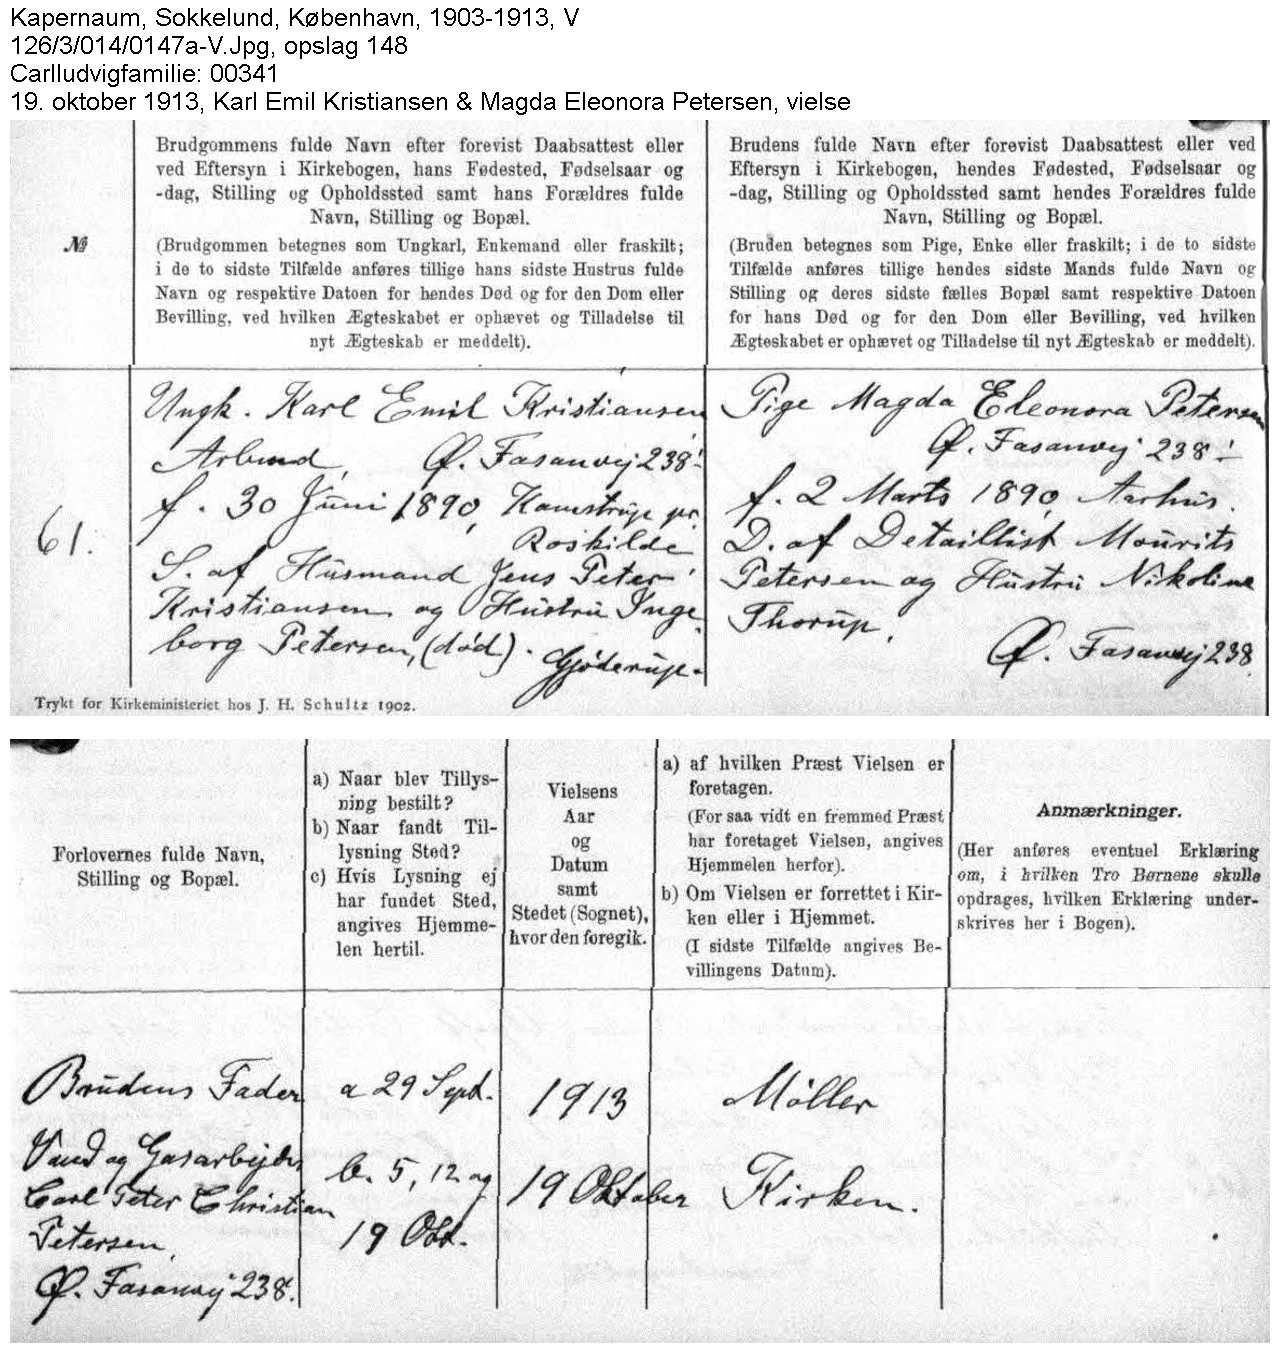 Kapernaum, Sokkelund, København, 1903-1913, V
126/3/014/0147a-V.Jpg, opslag 148
Carlludvigfamilie: 00341
19. oktober 1913, Karl Emil Kristiansen & Magda Eleonora Petersen, vielse
№
Brudgommens fulde Navn efter forevist Daabsattest eller
ved Eftersyn i Kirkebogen, hans Fødested, Fødselsaar og
-dag, Stilling og Opholdssted samt hans Forældres fulde
Navn, Stilling og Bopæl.
(Brudgommen betegnes som Ungkarl, Enkemand eller fraskilt;
i de to sidste Tilfælde anføres tillige hans sidste Hustrus fulde
Navn og respektive Datoen for hendes Død og for den Dom eller
Bevilling, ved hvilken Ægteskabet er ophævet og Tilladelse til
nyt Ægteskab er meddelt).
Brudens fulde Navn efter forevist Daabsattest eller ved
Eftersyn i Kirkebogen, hendes Fødested, Fødselsaar og
-dag, Stilling og Opholdssted samt hendes Forældres fulde
Navn, Stilling og Bopæl.
(Bruden betegnes som Pige, Enke eller fraskilt; i de to sidste
Tilfælde anføres tillige hendes sidste Mands fulde Navn og
Stilling og deres sidste fælles Bopæl samt respektive Datoen
for hans Død og for den Dom eller Bevilling, ved hvilken
Ægteskabet er ophævet og Tilladelse til nyt Ægteskab er meddelt).
61.
Ungk. Karl Emil Kristiansen
Arbmd, Gl. Fasanvej 238
f. 30 Juni 1890, Kamstrup pr.
Roskilde
S. af Husmand Jens Peter
Kristiansen og Hustru Inge
borg Petersen, (død). Gjøderup.
Pige Magda Eleonora Petersen
Gl. Fasanvej 238
f. 2 Marts 1890, Aarhus.
D. af Detaillist Mourits
Petersen og Hustru Nikoline
Thorup.
Gl. Fasanvej 238
Trykt for Kirkeministeriet hos J. H. Schultz 1902.
Forlovernes fulde Navn,
Stilling og Bopæl.
a) Naar blev Tillys-
ning bestilt?
b) Naar fandt Til-
lysning Sted?
c) Hvis Lysning ej
har fundet Sted,
angives Hjemme-
len hertil.
Vielsens
Aar
og
Datum
samt
Stedet (Sognet),
hvor den foregik.
a) af hvilken Præst Vielsen er
foretagen.
(For saa vidt en fremmed Præst
har foretaget Vielsen, angives
Hjemmelen herfor).
b) Om Vielsen er forrettet i Kir-
ken eller i Hjemmet.
(I sidste Tilfælde angives Be-
villingens Datum).
Anmærkninger.
(Her anføres eventuel Erklæring
om, i hvilken Tro Børnene skulle
opdrages, hvilken Erklæring under-
skrives her i Bogen).
Brudens Fader
Vand og Gasarbejder
Carl Peter Christian
Petersen,
Gl. Fasanvej 238.
a 29 Sept.
b. 5, 12 og
19 Okt.
1913
19 Oktober
Møller
Kirken.